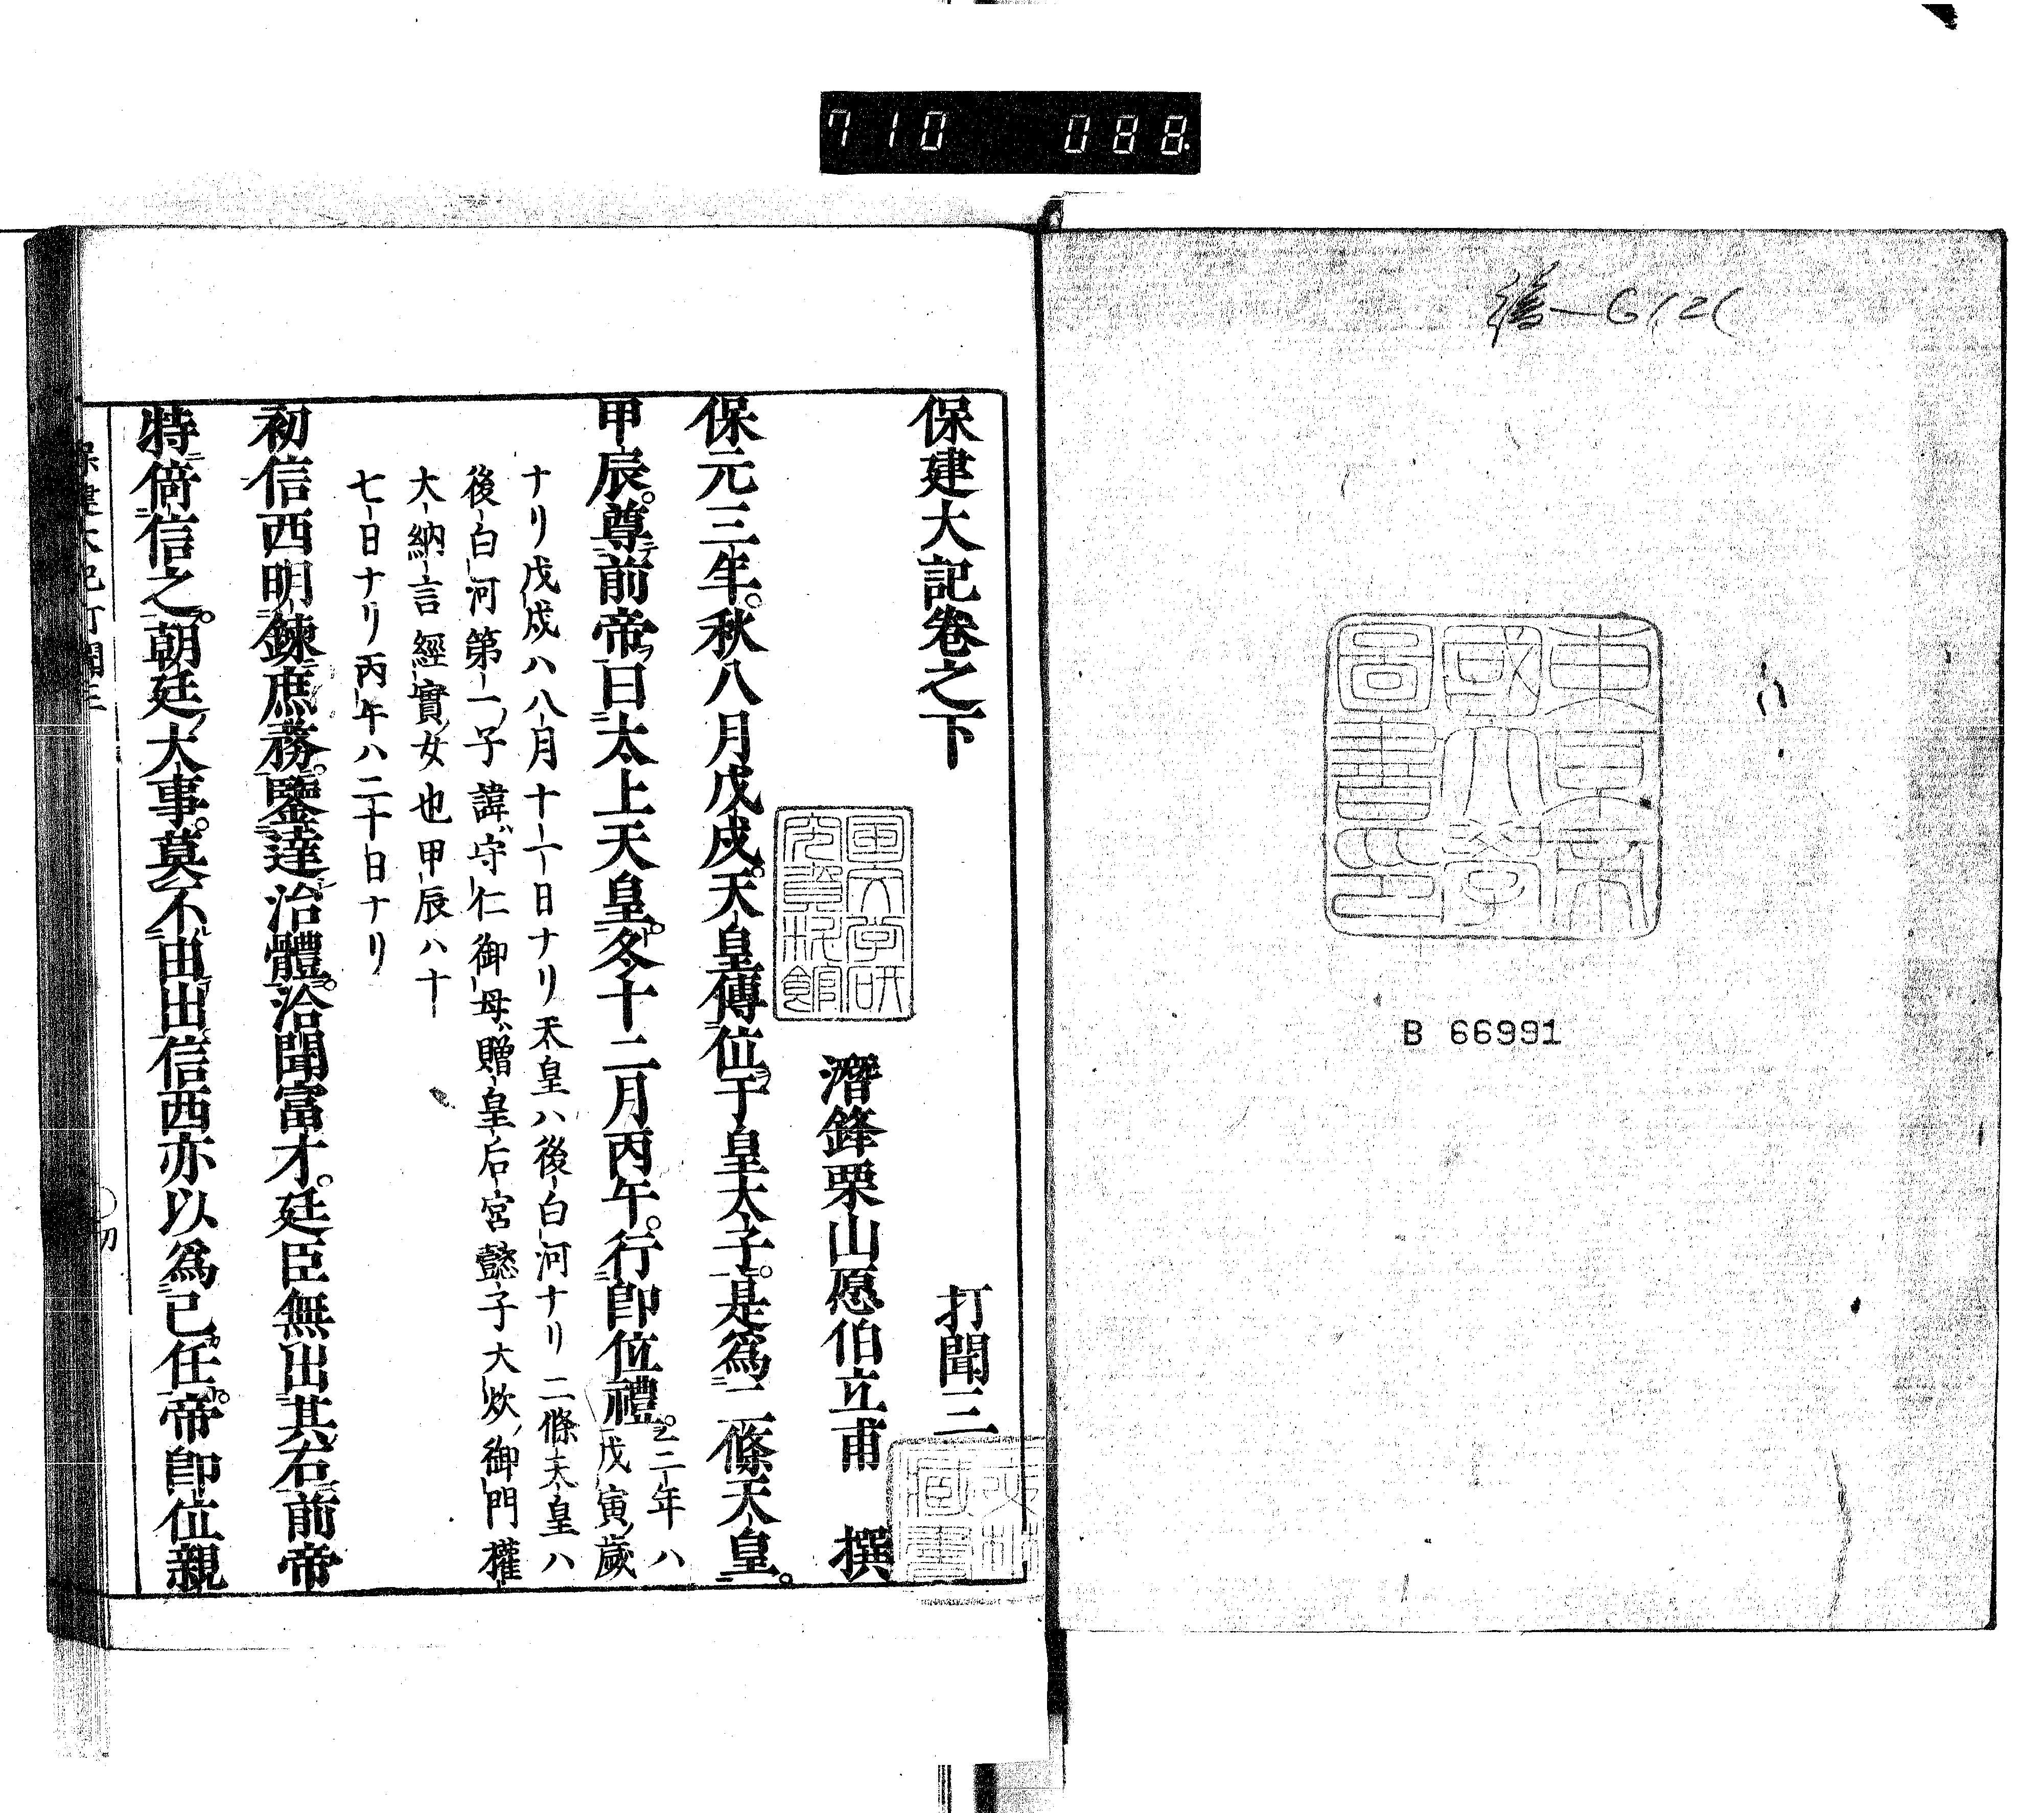 710 088
B 66991
東京帝國大學圖書印
保建大記卷之下
打聞三
潛鋒栗山愿伯立甫 撰
保元三年。秋八月戊戌。天皇傳位于皇太子。是爲二條天皇。
甲辰。尊前帝曰太上天皇。冬十二月丙午。行卽位禮。
三年ハ
戊寅歲
ナリ戊戌ハ八月十一日ナリ天皇ハ後白河ナリ二條天皇ハ
後白河第一ノ子諱ハ守仁御母ハ贈皇后宮懿子大炊ノ御門權
大納言經實ノ女也甲辰ハ十
七日ナリ丙午ハ二十日ナリ
初信西明鍊庶務。鑒達治體。洽聞富才。廷臣無出其右。前帝
特倚信之。朝廷大事。莫不由出信西亦以爲己任。帝卽位親